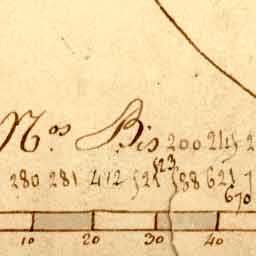 Nos Bis 200 219 2
523
280 281 412 521 588 621 7
670
10 20 30 40